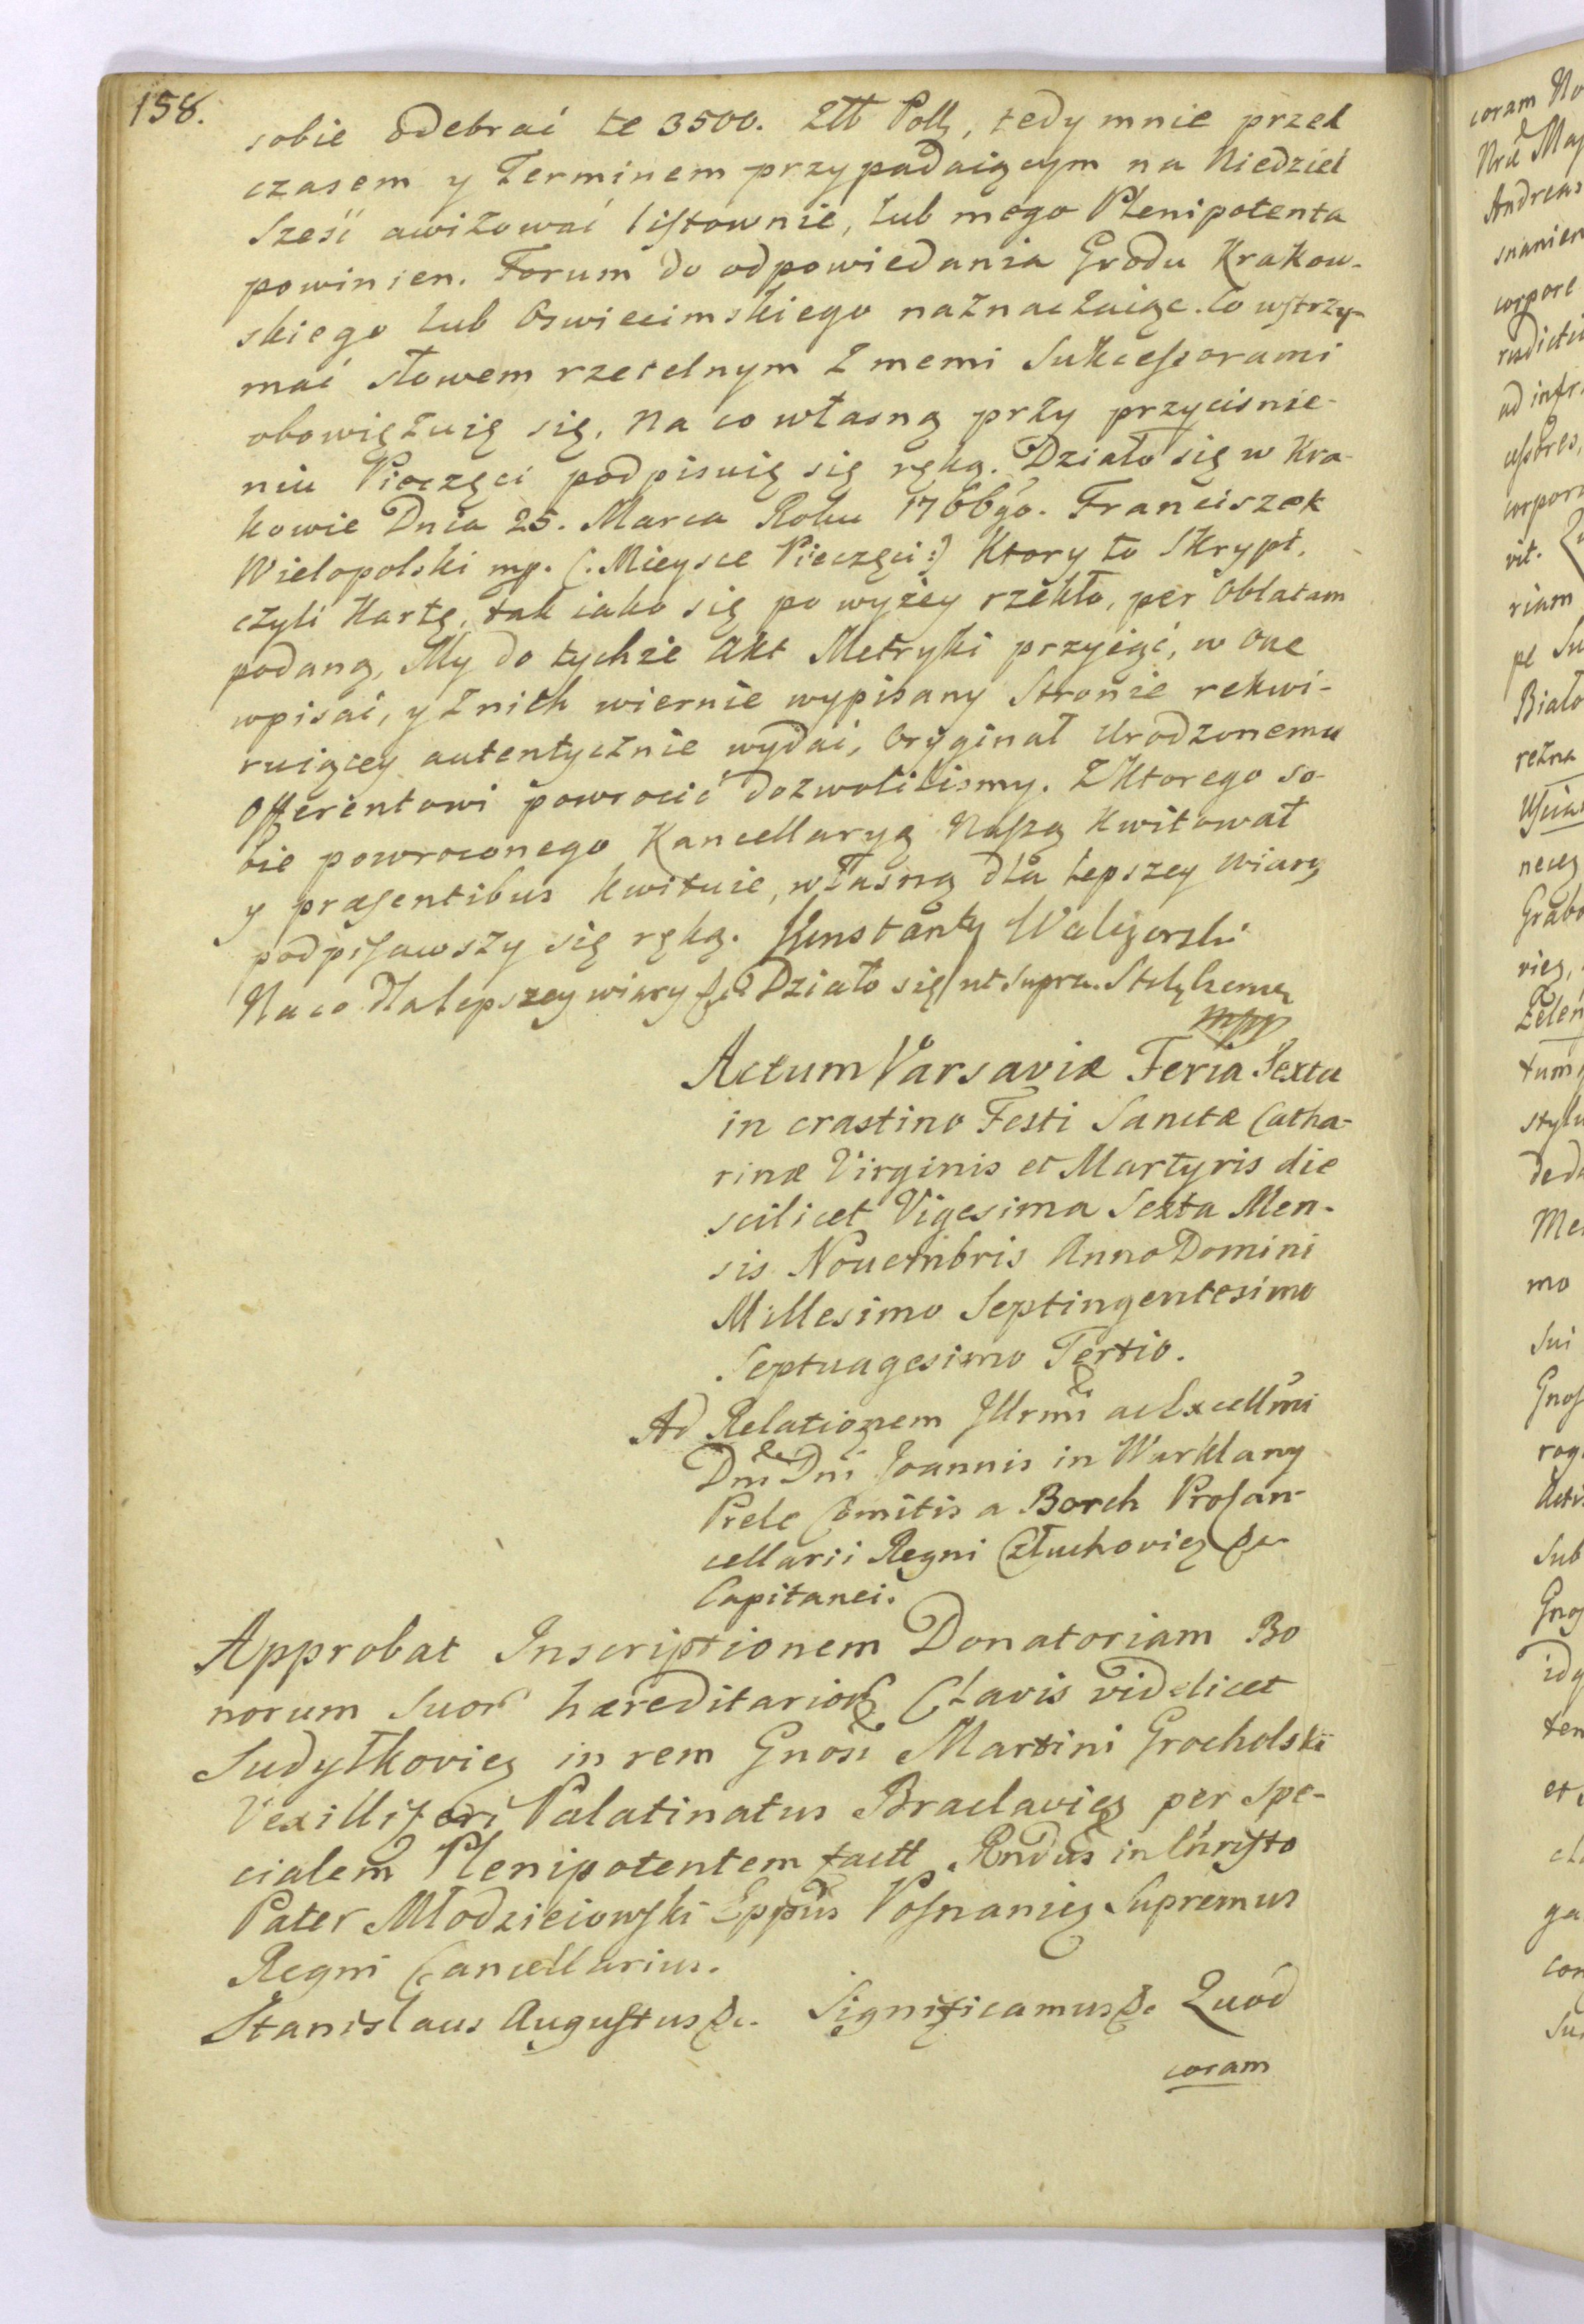 158.
sobie odebrać te 3500. Złł Polł, tedy mnie przed
czasem y Terminem przypadaiącym na Niedziel
Sześć awizować listownie, lub mego Plenipotenta
powinien. Forum do odpowiedania Grodu Krakow-
skiego lub Oswiecimskiego naznaczaiąc. Co wstrzy-
mać słowem rzetelnym z memi Sukcessorami
obowiązuię się, na co własną przy przyciśnie-
niu Pieczęci podpisuię się ręką. Działo się w Kra-
kowie Dnia 25. Marca Roku 1766go. Franciszek
Wielopolski mp. (: Mieysce Pieczęci :) Ktory to Skrypt,
czyli Kartę, tak iako się powyżey rzekło, per Oblatam
podaną, My do tychże Akt Metryki przyiąć, w one
wpisać, y z nich wiernie wypisany Stronie rekwi-
ruiącey autentycznie wydać, Oryginał Urodzonemu
Offerentowi powrocić dozwolilismy. Z Ktorego so-
bie powroconego Kancellaryą Naszą kwitował
y præsentibus kwituie, własną dla lepszey wiary
podpisawszy się ręką. Konstanty Waligorski
Na co dla lepszey wiary &c Działo się ut supra.
mpp
Actum Varsaviæ Feria Sexta
in crastino Festi Sanctæ Catha-
rinæ Virginis et Martyris die
scilicet Vigesima Sexta Men-
sis Novembris Anno Domini
Millesimo Septingentesimo
Septuagesimo Tertio.
Ad Relationem Illrmi ac Excellmi
Dni Dni Joannis in Warklany
Prele Comitis a Borch Procan-
cellarii Regni Człuchovieȝ &c
Capitanei.
Approbat Inscriptionem Donatoriam Bo
norum suor hæreditarioꝝ Clavis videlicet
Sudyłkovieȝ in rem Gnosi Martini Grocholski
Vexilliferi Palatinatus Braclavieȝ per Spe-
cialem Plenipotentem factt. Rndus in Christo
Pater Młodzieiowski Eppus Posnanieȝ Supremus
Regni Cancellarius.
Stanislaus Augustus &c. Significamus &c. Quod
coram